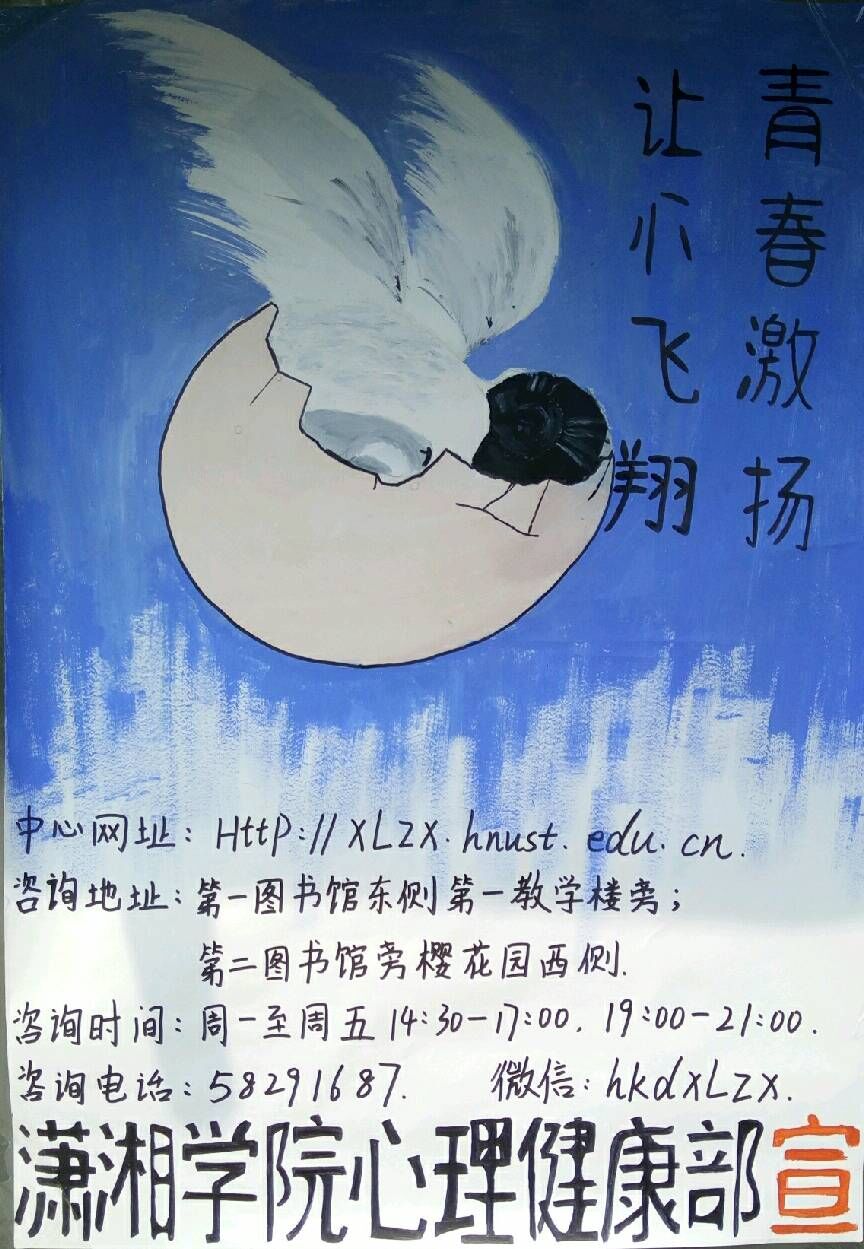 青春激扬
让心飞翔
中心网址：Http://xLzx.hnust.edu.cn.
咨询地址：第一图书馆东侧第一教学楼旁；
第二图书馆旁樱花园西侧.
咨询时间：周一至周五 14:30-17:00. 19:00-21:00.
咨询电话：58291687. 微信：hkdxLzx.
潇湘学院心理健康部宣